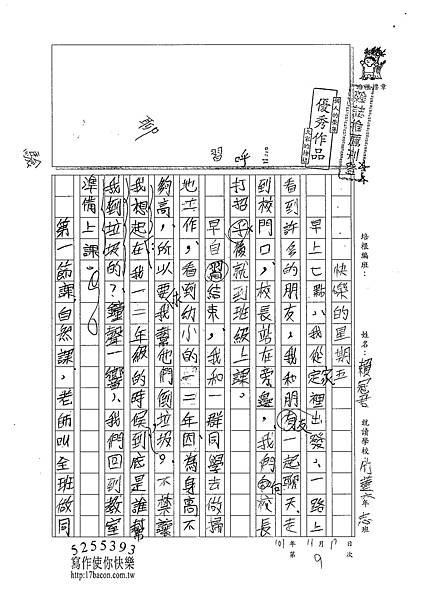 快樂的星期五
早上七點，我從家裡出發，一路上
看到許多的朋友，我和朋友一起聊天走
到校門口，校長站在旁邊，我們向校長
打招呼後就到班級上課。
早自習結束，我和一群同學去做掃
地工作，看到幼小的一二年因為身高不
夠高，所以要我幫他們倒垃圾，不禁讓
我想起在我一二年級的時候到底是誰幫
我倒垃圾的？鐘聲一響，我們回到教室
準備上課。
第一節課，自然課，老師叫全班做同
習
呼
優秀作品
培根編班：
姓名：
就讀學校
年
班
101年11月
日
第9次
5255393
寫作使你快樂
http://17bacon.com.tw/